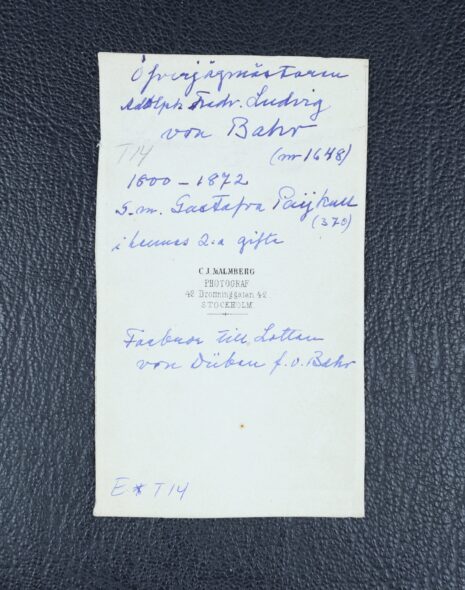 Öfverjägmästaren
Adolph Fredr. Ludvig
von Bahr
T14
(nr 1648)
1800 - 1872
G.m. Gustafva Paijkull
(370)
i hennes 2:a gifte
C J MALMBERG
PHOTOGRAF
42 Drottninggatan 42
STOCKHOLM
Farbror till Lotten
von Düben f. v. Bahr
E * T14